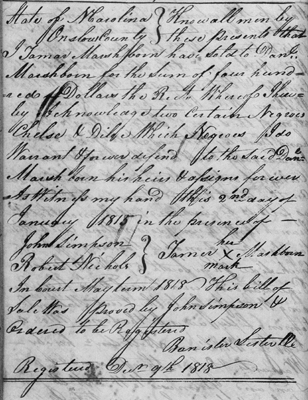 State of N Carolina } Know all men by
Onslow County } these presents that
I Tamer Mashborn have sold to Danl.
Mashborn for the sum of four hund
red Dollars the Rect. Whereof I here
by Acknowledge two Certain Negroes
Chelse & Dilse Which Negroes I do
Warrant & forever defend to the said Danl.
Mashborn his heirs & assigns forever
As Witness my hand this 2nd day of
January 1818 in the presence of
John Simpson } her
Robert Nichols } Tamer X Mashburn
mark
In Court May Term 1818 This bill of
Sale Was proved by John Simpson &
Ordered to be Registered
Banister Lester
Registered Decr 9th 1818